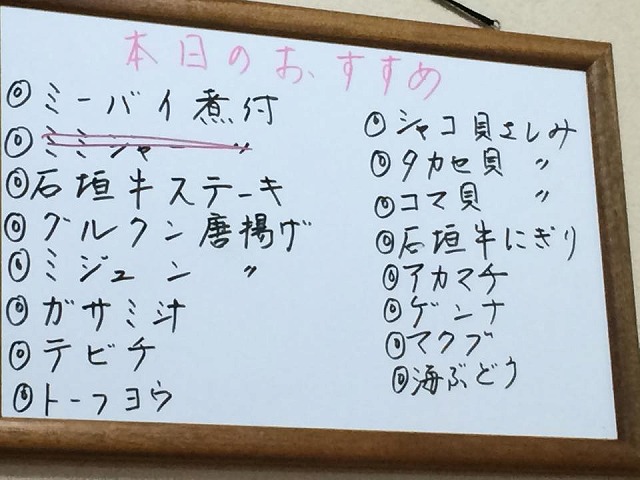 本日のおすすめ
◎ミーバイ煮付
◎ミミジャー 〃
◎石垣牛ステーキ
◎グルクン唐揚げ
◎ミジュン 〃
◎ガサミ汁
◎テビチ
◎トーフヨウ
◎シャコ貝さしみ
◎タカセ貝 〃
◎コマ貝 〃
◎石垣牛にぎり
◎アカマチ
◎ゲンナ
◎マクブ
◎海ぶどう